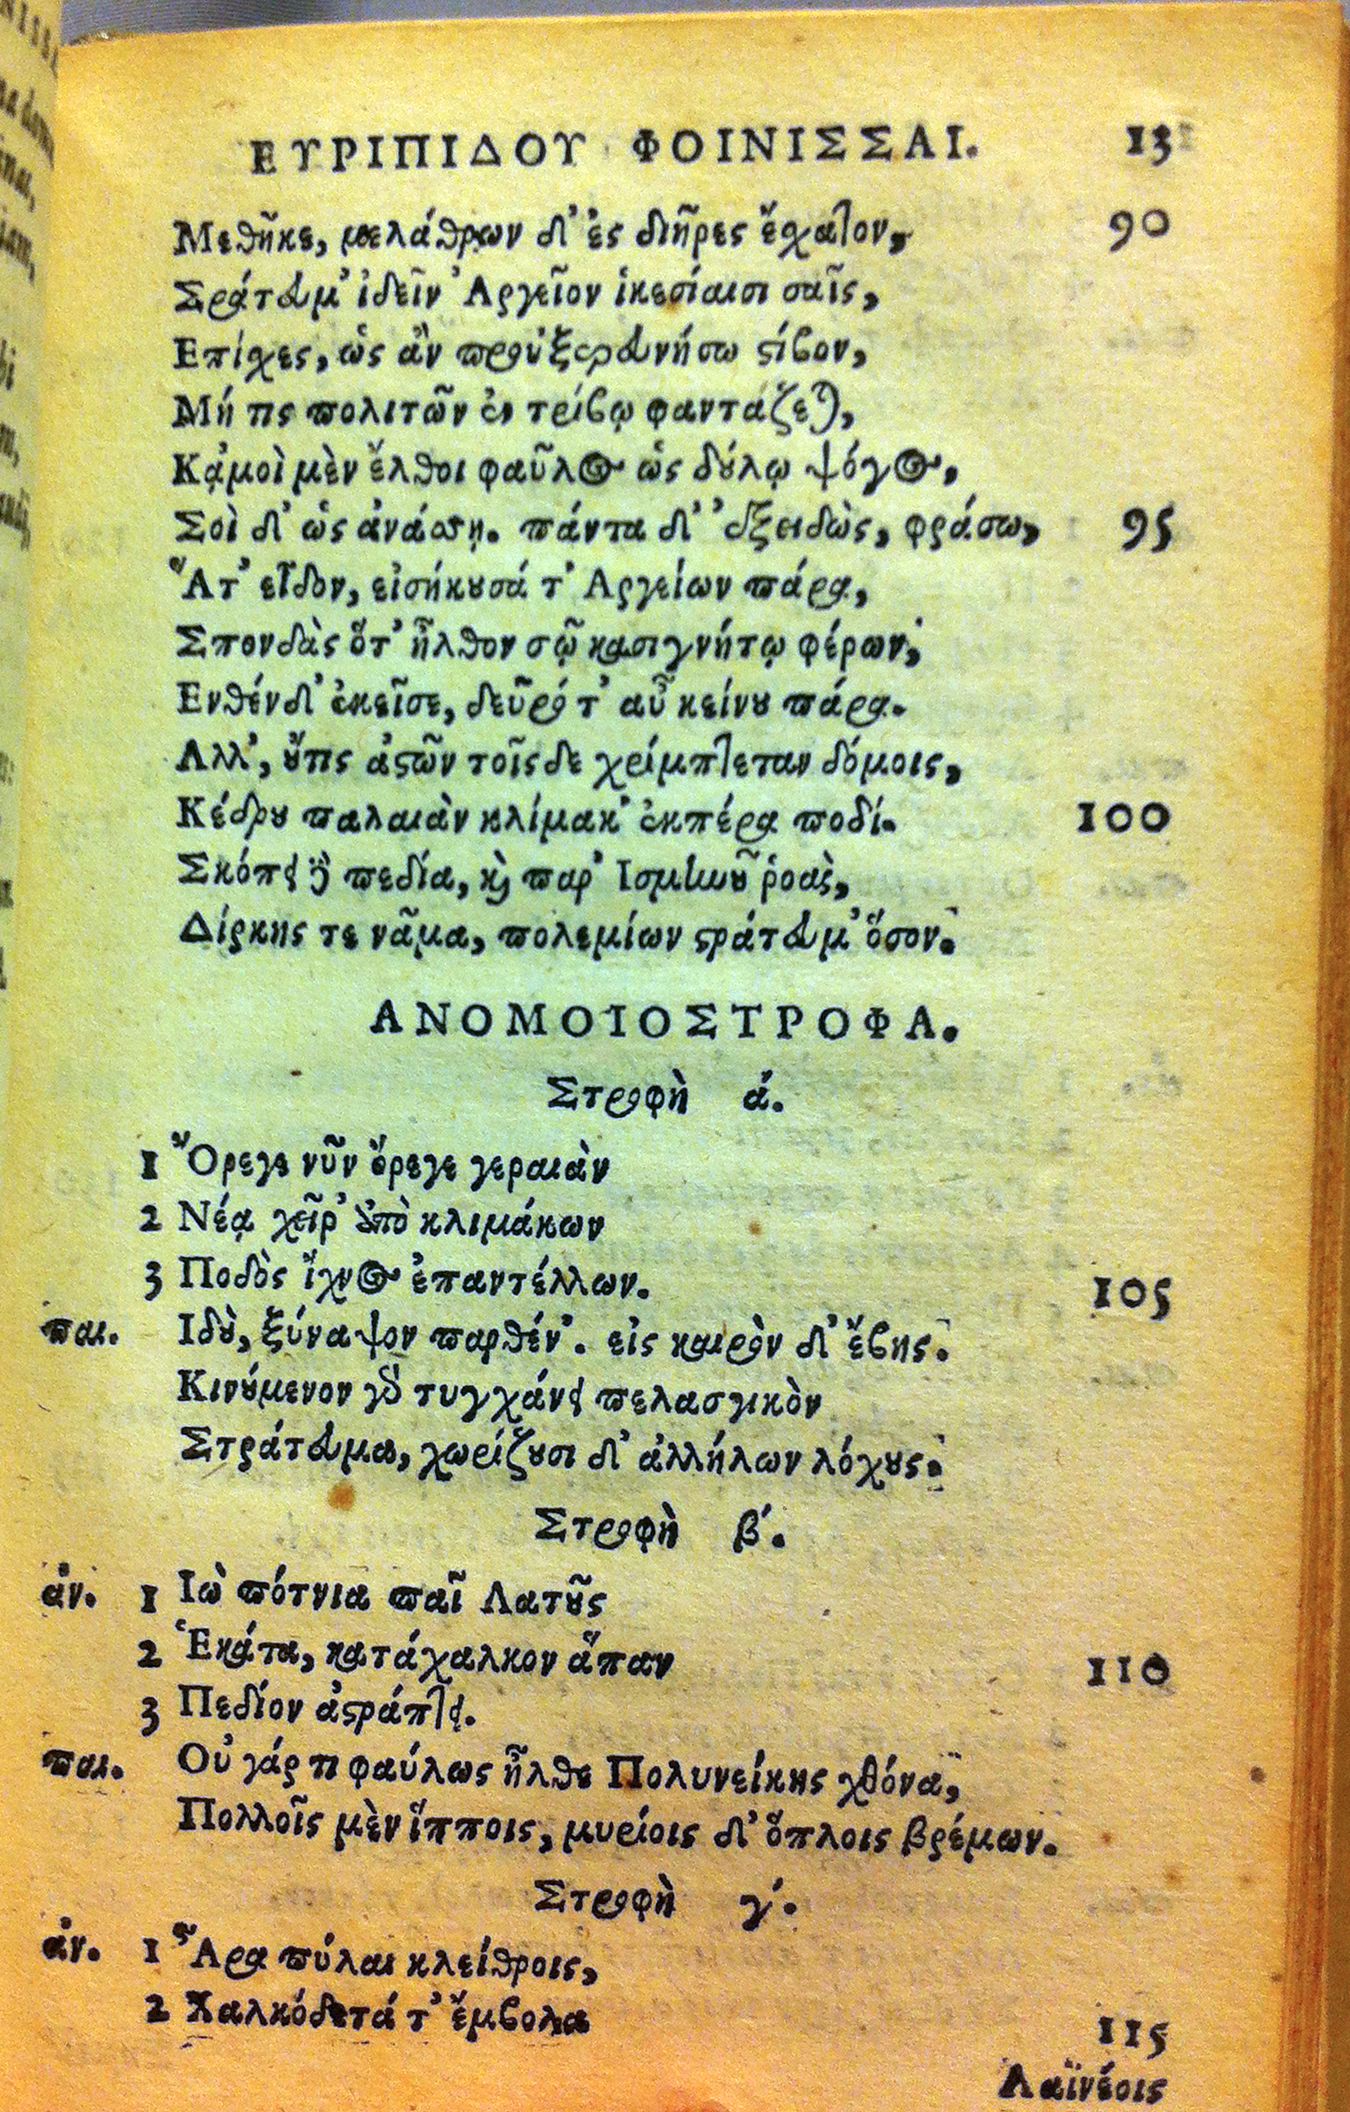 ΕΥΡΙΠΙΔΟΥ ΦΟΙΝΙΣΣΑΙ. 13
Μεθῆκε, μελάθρων δ' ἐς διῆρες ἔσχατον, 90
Στράτευμ' ἰδεῖν Ἀργεῖον ἱκεσίαισι σαῖς,
Επίσχες, ὡς ἂν προὐξερευνήσω στίβον,
Μή τις πολιτῶν ἐν τρίβῳ φαντάζεται,
Κᾀμοὶ μὲν ἔλθοι φαῦλος ὡς δούλῳ ψόγος,
Σοὶ δ' ὡς ἀνάσσῃ. πάντα δ' ἐξειδὼς, φράσω, 95
Ἅτ' εἶδον, εἰσήκουσά τ' Αργείων πάρα,
Σπονδὰς ὅτ' ἦλθον σῷ κασιγνήτῳ φέρων,
Ενθένδ' ἐκεῖσε, δεῦρό τ' αὖ κείνου πάρα.
Αλλ', οὔτις ἀστῶν τοῖςδε χρίμπτεται δόμοις,
Κέδρου παλαιὰν κλίμακ' ἐκπέρα ποδί. 100
Σκόπει δὲ πεδία, καὶ παρ' Ισμηνοῦ ῥοὰς,
Δίρκης τε νᾶμα, πολεμίων στράτευμ' ὅσον.
ΑΝΟΜΟΙΟΣΤΡΟΦΑ.
Στροφὴ ά.
1 Ὄρεγε νῦν ὄρεγε γεραιὰν
2 Νέᾳ χεῖρ' ἀπὸ κλιμάκων
3 Ποδὸς ἴχνος ἐπαντέλλων. 105
παι. Ιδοὺ, ξύναψον παρθέν'. εἰς καιρὸν δ' ἔβης.
Κινούμενον γὰρ τυγχάνει πελασγικὸν
Στράτευμα, χωρίζουσι δ' ἀλλήλων λόχους.
Στροφὴ β'.
ἀν. 1 Ιὼ πότνια παῖ Λατοῦς
2 Ἑκάτα, κατάχαλκον ἅπαν 110
3 Πεδίον ἀστράπτει.
παι. Οὐ γάρ τι φαύλως ἦλθε Πολυνείκης χθόνα,
Πολλοῖς μὲν ἵπποις, μυρίοις δ' ὅπλοις βρέμων.
Στροφὴ γ'.
ἀν. 1 Ἆρα πύλαι κλείθροις,
2 Χαλκόδετά τ' ἔμβολα 115
Λαϊνέοις